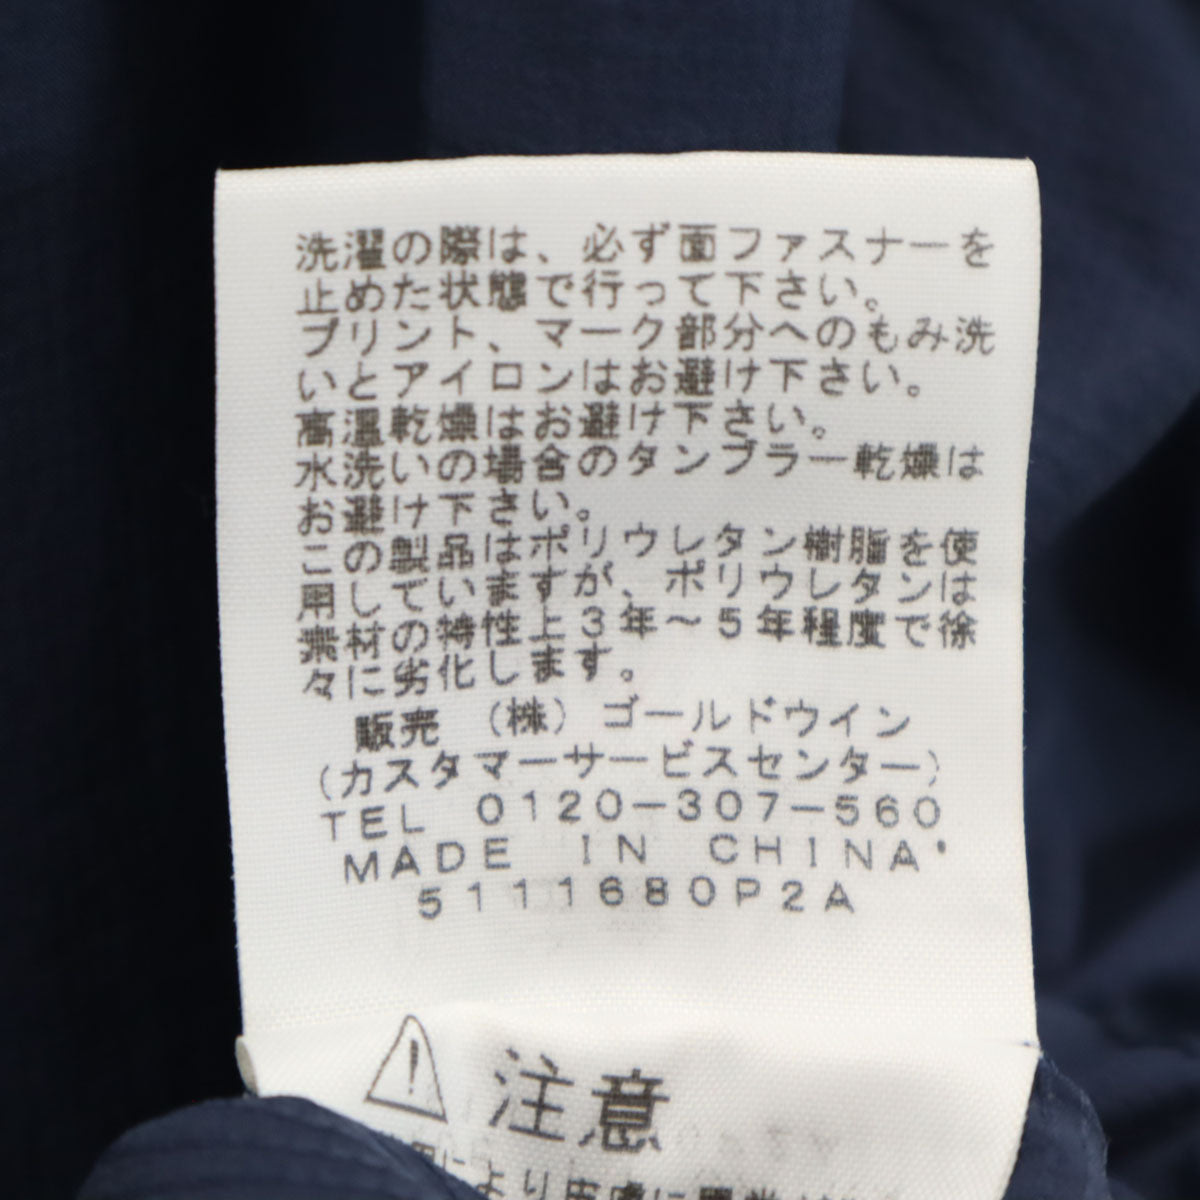 洗濯の際は、必ず面ファスナーを
止めた状態で行って下さい。
プリント、マーク部分へのもみ洗
いとアイロンはお避け下さい。
高温乾燥はお避け下さい。
水洗いの場合のタンブラー乾燥は
お避け下さい。
この製品はポリウレタン樹脂を使
用していますが、ポリウレタンは
素材の特性上3年～5年程度で徐
々に劣化します。
販売 (株) ゴールドウイン
(カスタマーサービスセンター)
TEL 0120-307-560
MADE IN CHINA
5111680P2A
注意
により皮膚に異常が